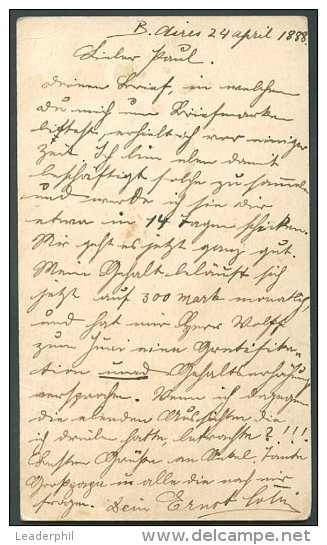 B. Aires 24 april 1888
Lieber Paul.
Deinen Brief, in welchem
Du mich um Briefmarken
bittest, erhielt ich vor einiger
Zeit. Ich bin eben damit
beschäftigt solche zu sammeln
und werde ich sie Dir
etwa in 14 Tagen schicken.
Mir geht es jetzt ganz gut.
Mein Gehalt beläuft sich
jetzt auf 300 Mark monatlich,
und hat mir Herr Wolff
zum Juni eine Gratifika-
tion und Gehaltserhöhung
versprochen. Wenn ich dagegen
die elenden Aussichten die
ich drüben hatte, betrachte?!!!
Besten Grüße an Onkel Tante
Großpapa und alle die nach mir
fragen. Dein Ernst
Leaderphil
delcampe.net